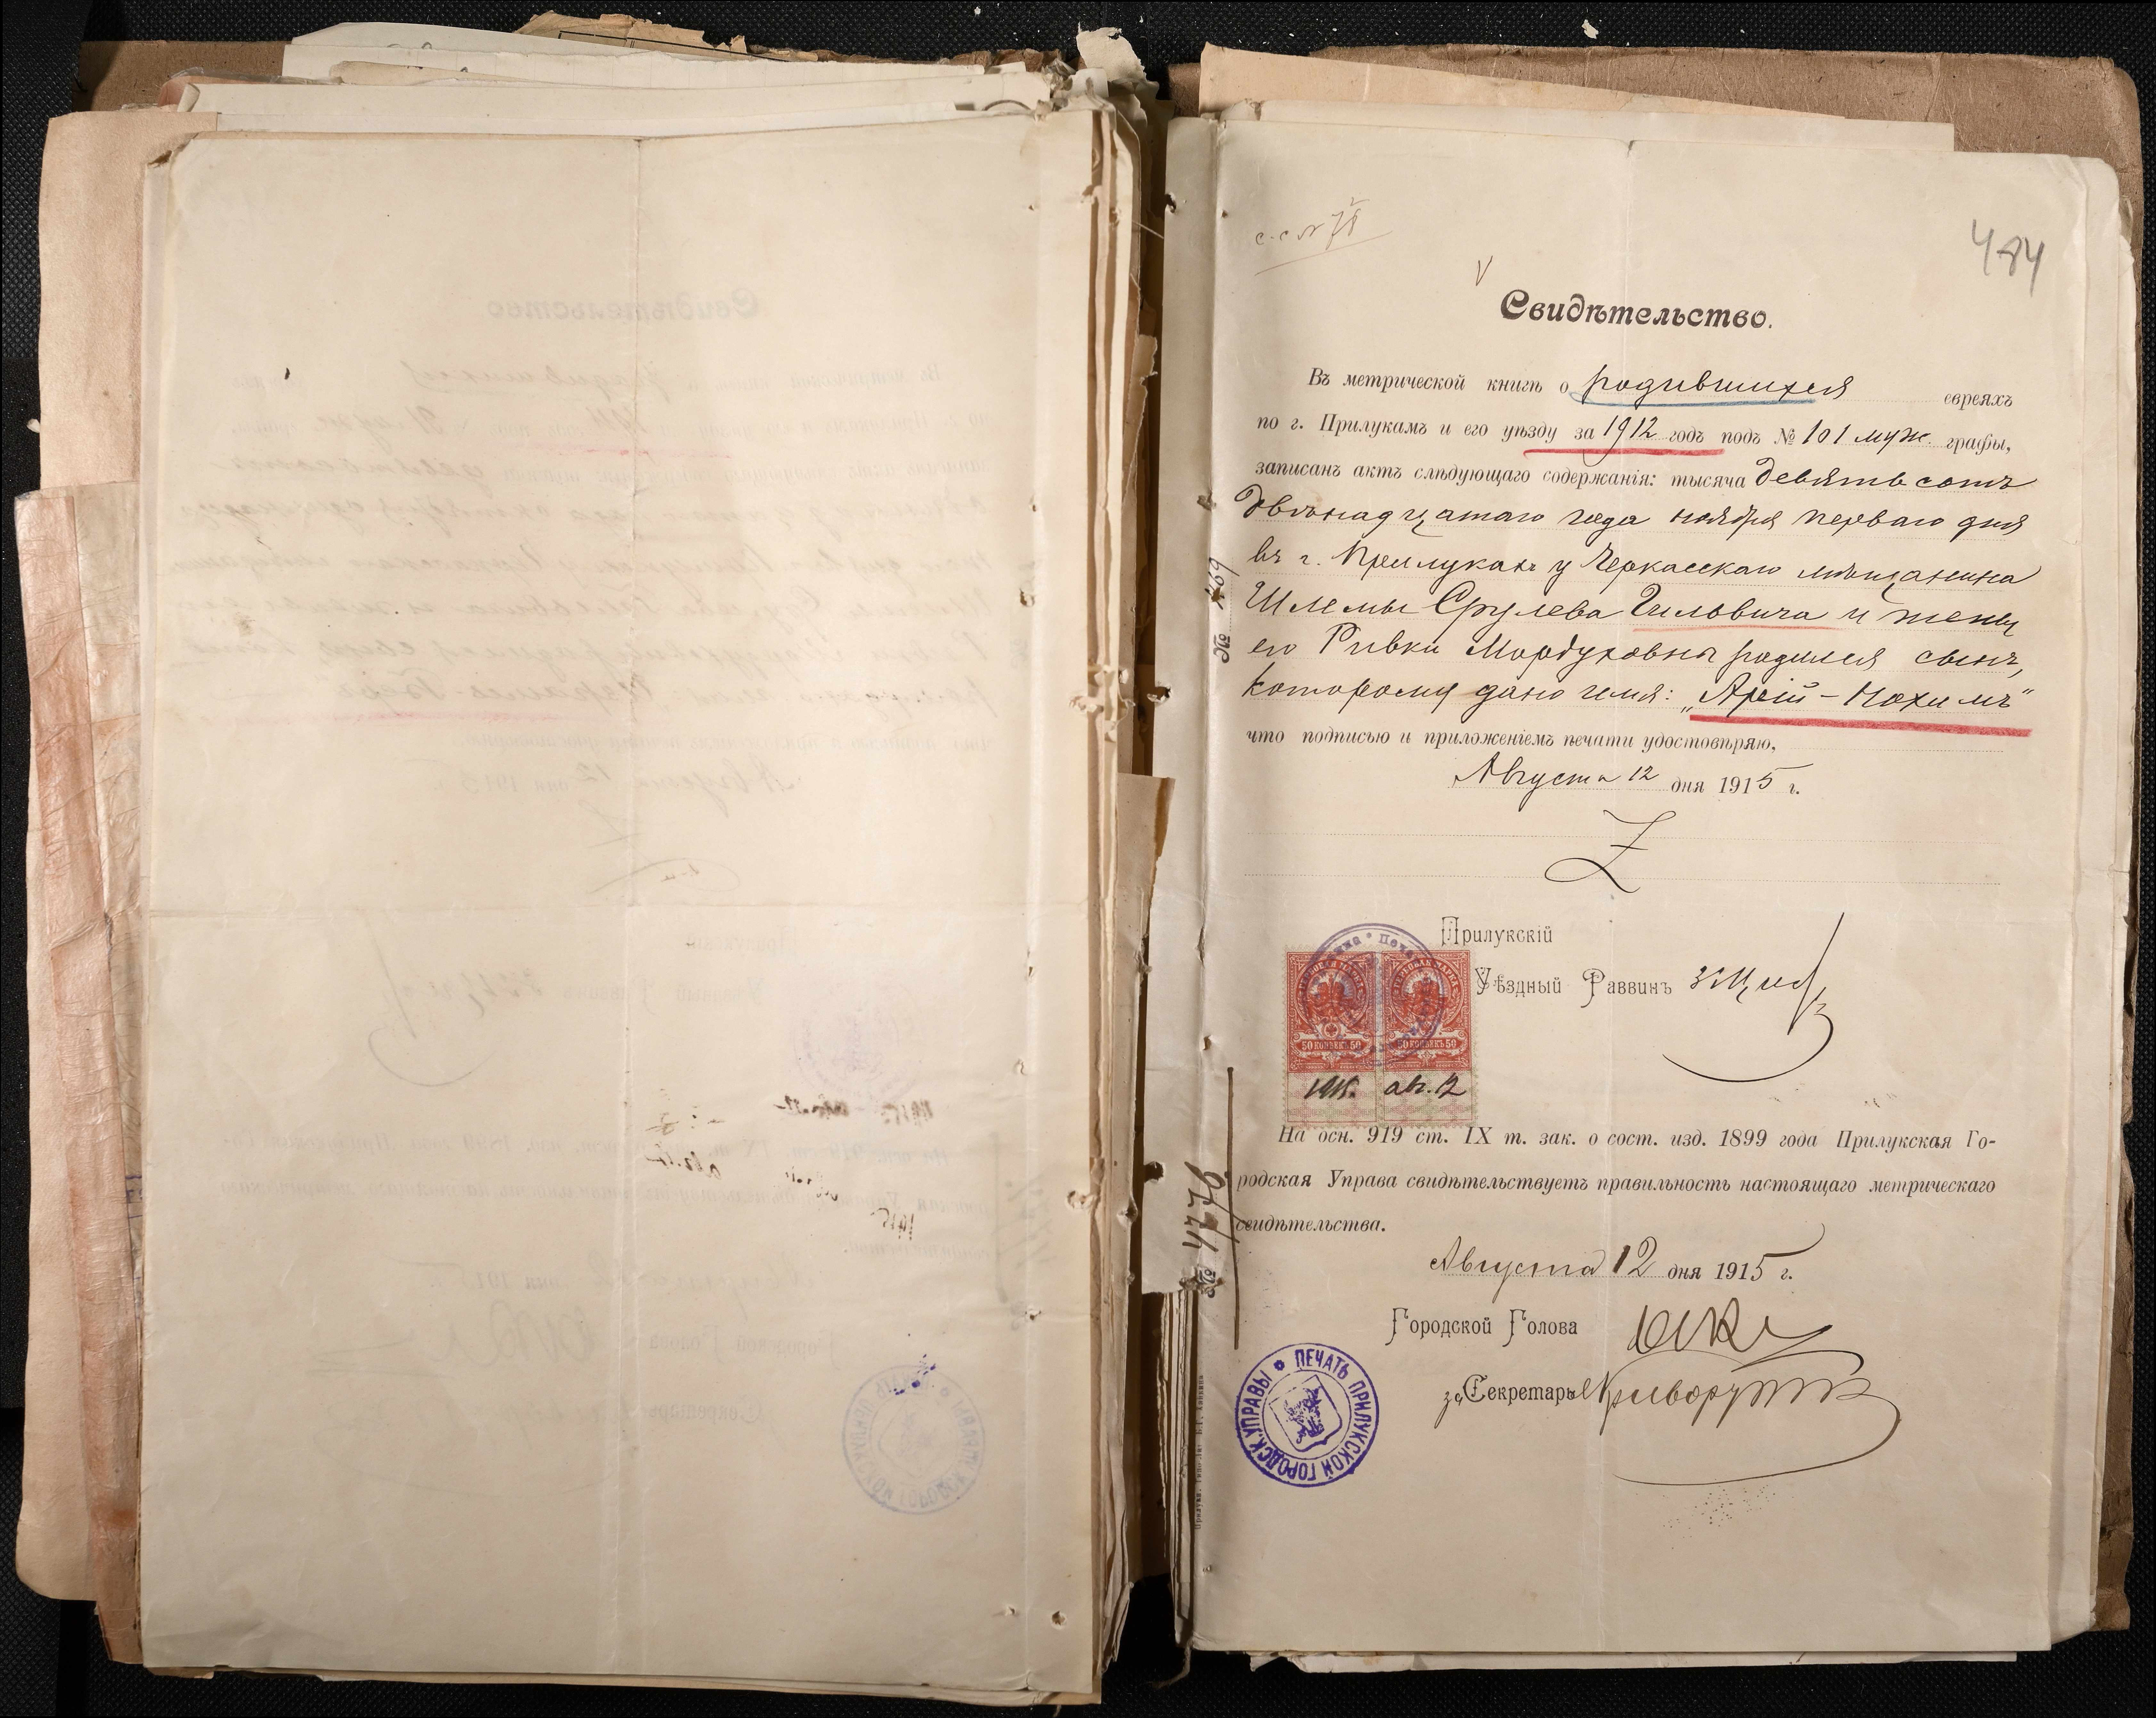 484
Свидѣтельство.
Въ метрической книгѣ о родившихся евреяхъ
по г. Прилукамъ и его уѣзду за 1912 годъ подъ № 101 муж. графы,
записанъ актъ слѣдующаго содержанія: тысяча девятьсотъ
двѣнадцатаго года ноября перваго дня
въ г. Прилукахъ у Черкасскаго мѣщанина
Шлемы Срулева Гиловича и жены
его Ривки Мордуховны родился сынъ,
которому дано имя: „Арій-Нохимъ"
что подписью и приложеніемъ печати удостовѣряю,
Августа 12 дня 1915 г.
Z
Прилукскій
Уѣздный Раввинъ
50 КОПѢЕКЪ 50 50 КОПѢЕКЪ 50
1915. авг. 12
На осн. 919 ст. IX т. зак. о сост. изд. 1899 года Прилукская Го-
родская Управа свидѣтельствуетъ правильность настоящаго метрическаго
свидѣтельства.
Августа 12 дня 1915 г.
Городской Голова
за Секретарь
ПЕЧАТЬ ПРИЛУКСКОЙ ГОРОДСК. УПРАВЫ
№ 4776